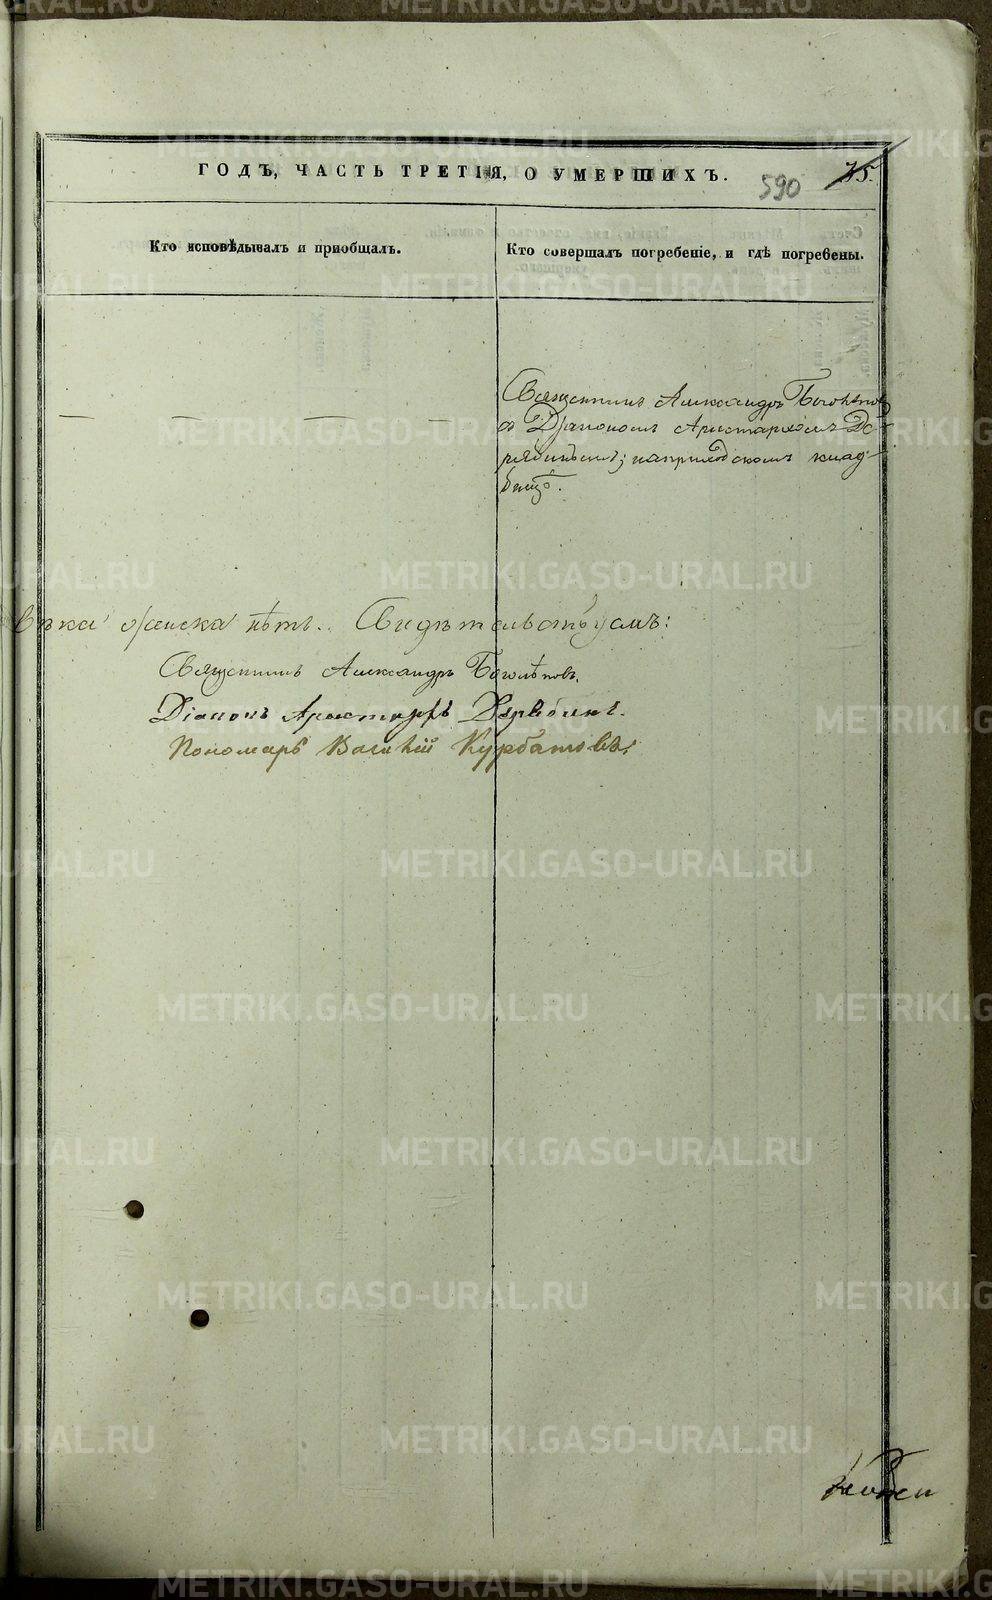 ГОДЪ, ЧАСТЬ ТРЕТІЯ, О УМЕРШИХЪ.
590
75.
Кто исповѣдывалъ и пріобщалъ.
Кто совершалъ погребеніе, и гдѣ погребены.
Священникъ Александръ Боголѣповъ
съ Діакономъ Аристархомъ Де-
рябинымъ; на приходскомъ клад-
бищѣ.
вѣка женска нѣтъ. Свидѣтельствуемъ:
Священникъ Александръ Боголѣповъ.
Діаконъ Аристархъ Дерябинъ.
Пономарь Василій Курбатовъ.
METRIKI.GASO-URAL.RU